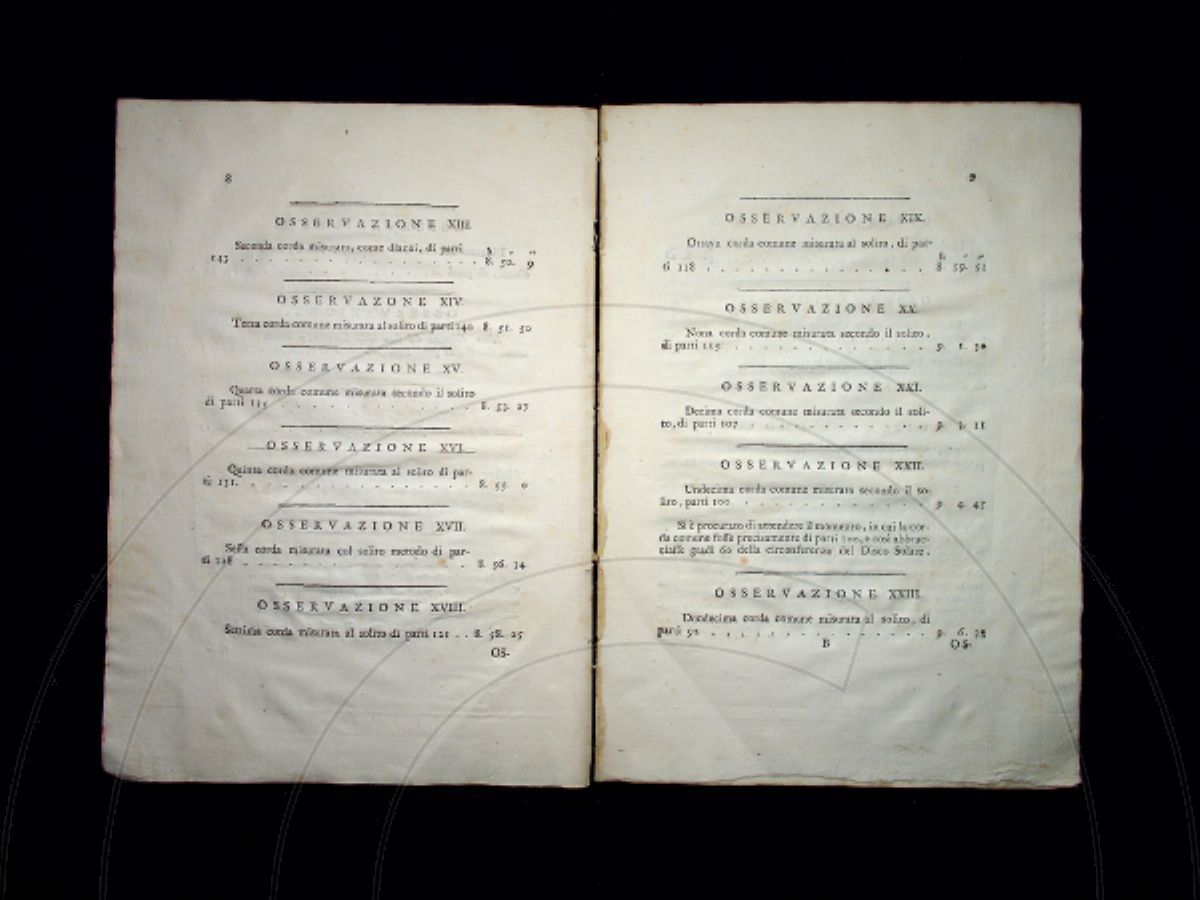 8
OSSERVAZIONE XIII.
Seconda corda misurata, come dianzi, di parti h. ,, ,,
143 . . . . . . . . . . . . . . . . 8. 50. 9
OSSERVAZONE XIV.
Terza corda comune misurata al solito di parti 140 8. 51. 50
OSSERVAZIONE XV.
Quarta corda comune misurata secondo il solito
di parti . . . . . . . . . . . . . . 8. 53. 27
OSSERVAZIONE XVI.
Quinta corda comune misurata al solito di par-
ti 131. . . . . . . . . . . . . . . . 8. 55. 0
OSSERVAZIONE XVII.
Sesta corda misurata col solito metodo di par-
ti 128 . . . . . . . . . . . . . . . 8. 56. 34
OSSERVAZIONE XVIII.
Settima corda misurata al solito di parti 121 . . 8. 58. 25
OS-
9
OSSERVAZIONE XIX.
Ottava corda comune misurata al solito, di par-
h. ,, ,,
ti 118 . . . . . . . . . . . . . . . 8. 59. 51
OSSERVAZIONE XX.
Nona corda comune misurata secondo il solito,
di parti 113 . . . . . . . . . . . . . 9. 1.
OSSERVAZIONE XXI.
Decima corda comune misurata secondo il soli-
to, di parti 107 . . . . . . . . . . . . 9. 3. 11
OSSERVAZIONE XXII.
Undecima corda comune misurata secondo il so-
lito, parti 100 . . . . . . . . . . . . 9. 4. 45
Si è procurato di attendere il momento, in cui la cor-
da comune fosse precisamente di parti 100, e così abbrac-
ciasse gradi 60 della circonferenza del Disco Solare.
OSSERVAZIONE XXIII.
Duodecima corda comune misurata al solito, di
parti . . . . . . . . . . . . . . . 9. 6.
B OS-